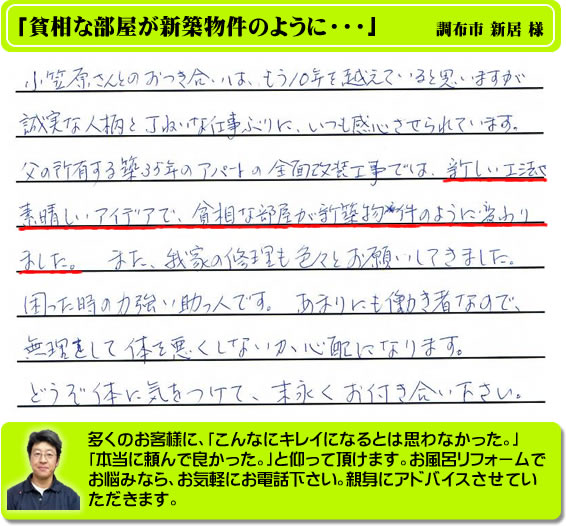 「貧相な部屋が新築物件のように・・・」 調布市 新居 様
小笠原さんとのおつき合いは、もう10年を越えていると思いますが
誠実な人柄と丁ねいな仕事ぶりに、いつも感心させられています。
父の所有する築35年のアパートの全面改装工事では、新しい工法や
素晴しいアイデアで、貧相な部屋が新築物件のように変わり
ました。 また、我家の修理も色々とお願いしてきました。
困った時の力強い助っ人です。 あまりにも働き者なので、
無理をして体を悪くしないか、心配になります。
どうぞ体に気をつけて、末永くお付き合い下さい。
多くのお客様に、「こんなにキレイになるとは思わなかった。」
「本当に頼んで良かった。」と仰って頂けます。お風呂リフォームで
お悩みなら、お気軽にお電話下さい。親身にアドバイスさせてい
ただきます。